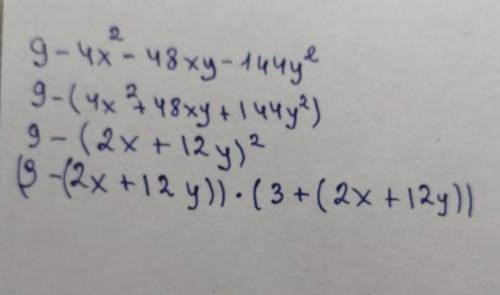 9-4x²-48xy-144y²
9-(4x²+48xy+144y²)
9-(2x+12y)²
(9-(2x+12y))·(3+(2x+12y))